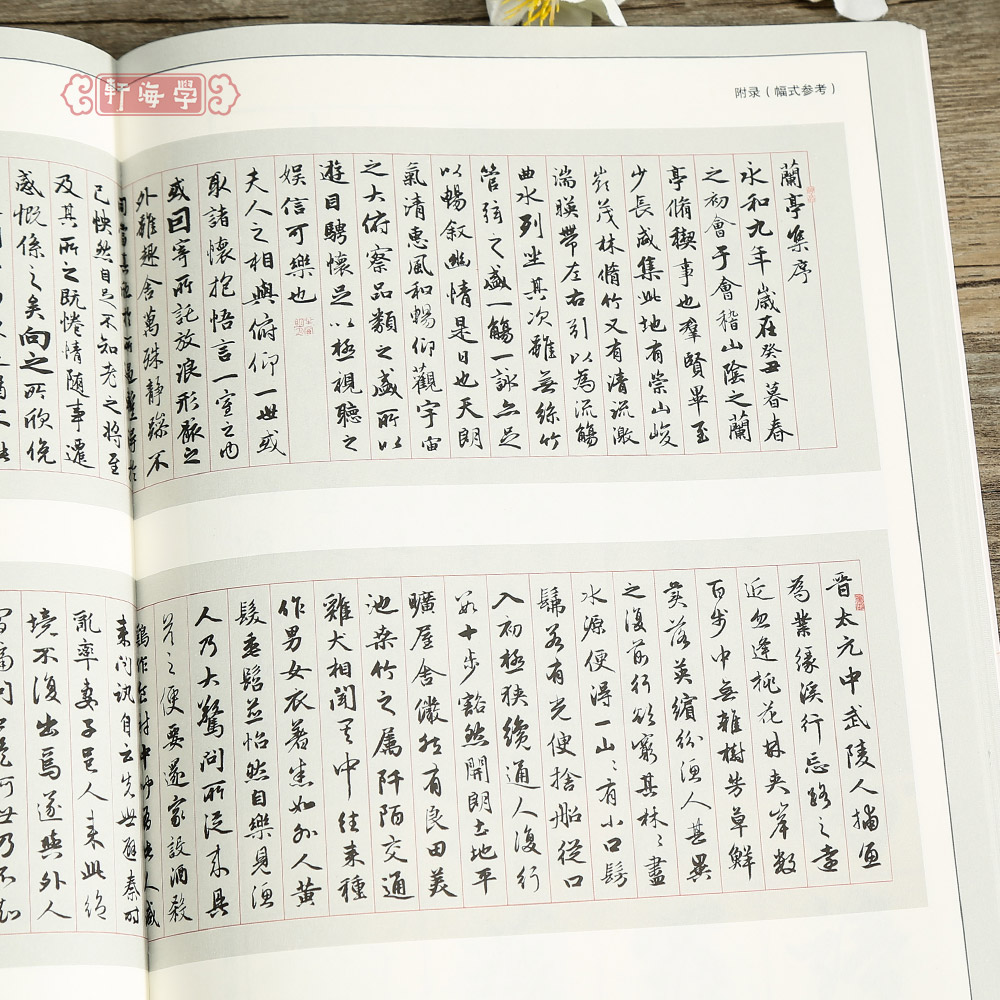 軒海學
附录（幅式参考）
蘭亭集序
永和九年歲在癸丑暮春
之初會于會稽山陰之蘭
亭脩稧事也羣賢畢至
少長咸集此地有崇山峻
嶺茂林脩竹又有清流激
湍暎帶左右引以為流觴
曲水列坐其次雖無絲竹
管弦之盛一觴一詠亦足
以暢叙幽情是日也天朗
氣清惠風和暢仰觀宇宙
之大俯察品類之盛所以
遊目騁懷足以極視聽之
娛信可樂也
夫人之相與俯仰一世或
取諸懷抱悟言一室之内
或因寄所託放浪形骸之
外雖趣舍萬殊靜躁不
同當其欣於所遇蹔得於
己怏然自足不知老之將至
及其所之既惓情随事遷
感慨係之矣向之所欣俛
晉太元中武陵人捕魚
為業緣溪行忘路之遠
近忽逢桃花林夾岸數
百步中無雜樹芳草鮮
美落英繽紛漁人甚異
之復前行欲窮其林林盡
水源便得一山山有小口髣
髴若有光便捨船從口
入初極狹纔通人復行
數十步豁然開朗土地平
曠屋舍儼然有良田美
池桑竹之属阡陌交通
雞犬相聞其中往来種
作男女衣著悉如外人黃
髮垂髫並怡然自樂見漁
人乃大驚問所從来具
答之便要還家設酒殺
雞作食村中聞有此人咸
来問訊自云先世避秦時
亂率妻子邑人来此絕
境不復出焉遂與外人